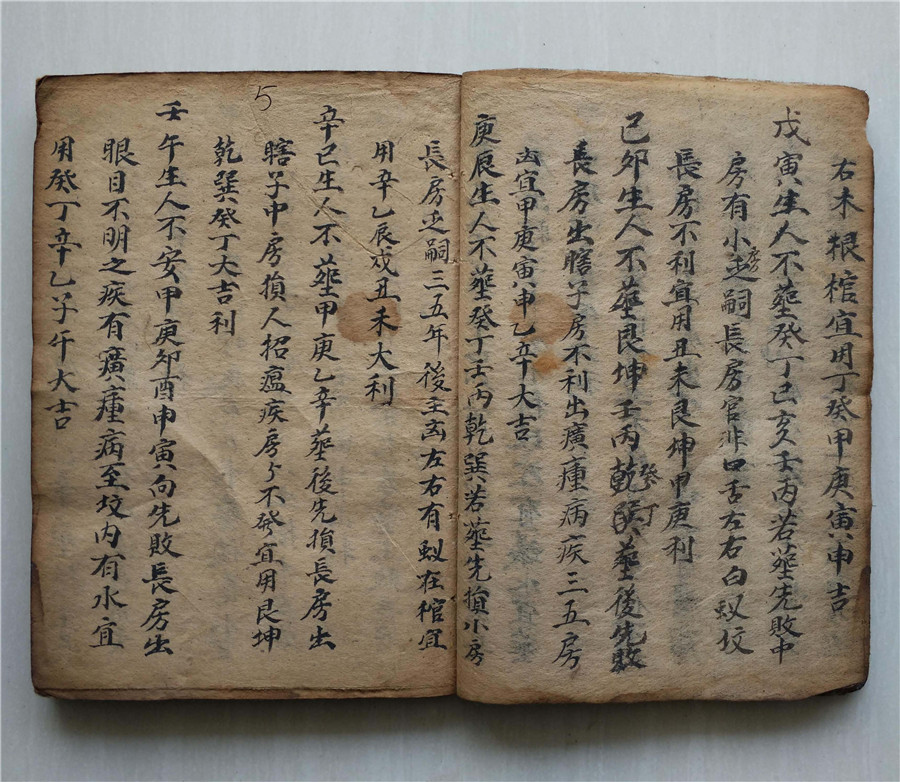 右木根棺宜用丁癸甲庚寅申吉
戊寅生人不塟癸丁巳亥壬丙若塟先敗中
房有小房乏嗣長房官非口舌左右白蚁坟
長房不利宜用丑未艮坤甲庚利
己卯生人不塟艮坤壬丙乾巽癸丁塟後先敗
長房出瞎子房不利出癀瘇病疾三五房
凶宜甲庚寅申乙辛大吉
庚辰生人不塟癸丁壬丙乾巽若塟先損小房
長房乏嗣三五年後主凶左右有蚁在棺宜
用辛乙辰戍丑未大利
5
辛巳生人不塟甲庚乙辛塟後先損長房出
瞎子中房損人招瘟疾房々不發宜用艮坤
乾巽癸丁大吉利
壬午生人不安甲庚卯酉申寅向先敗長房出
眼目不明之疾有癀瘇病至坟内有水宜
用癸丁辛乙子午大吉